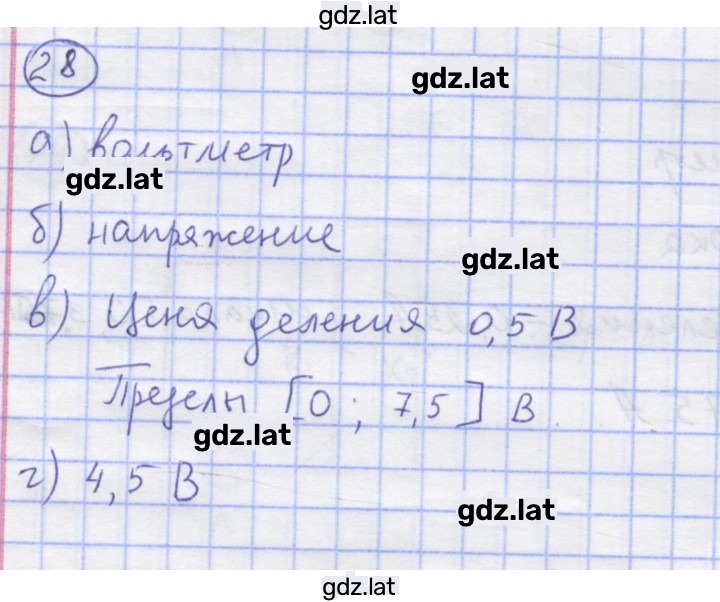 gdz.lat
28
gdz.lat
а) вольтметр
gdz.lat
б) напряжение
gdz.lat
в) Цена деления 0,5 В
Пределы [0 ; 7,5] В
gdz.lat
г) 4,5 В
gdz.lat
gdz.lat